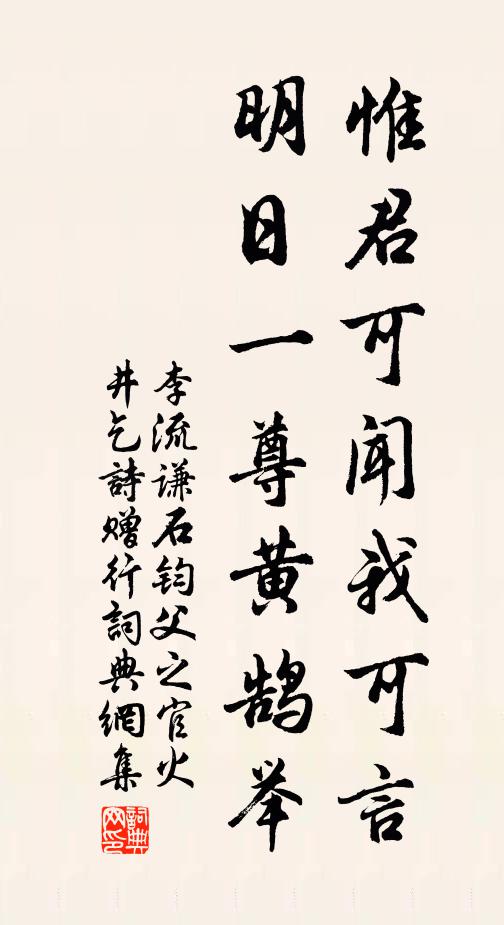 惟君可闻我可言
明日一尊黄鹄举
李流谦石钧父之官火
井乞詩赠行詞典網集
詞典網印